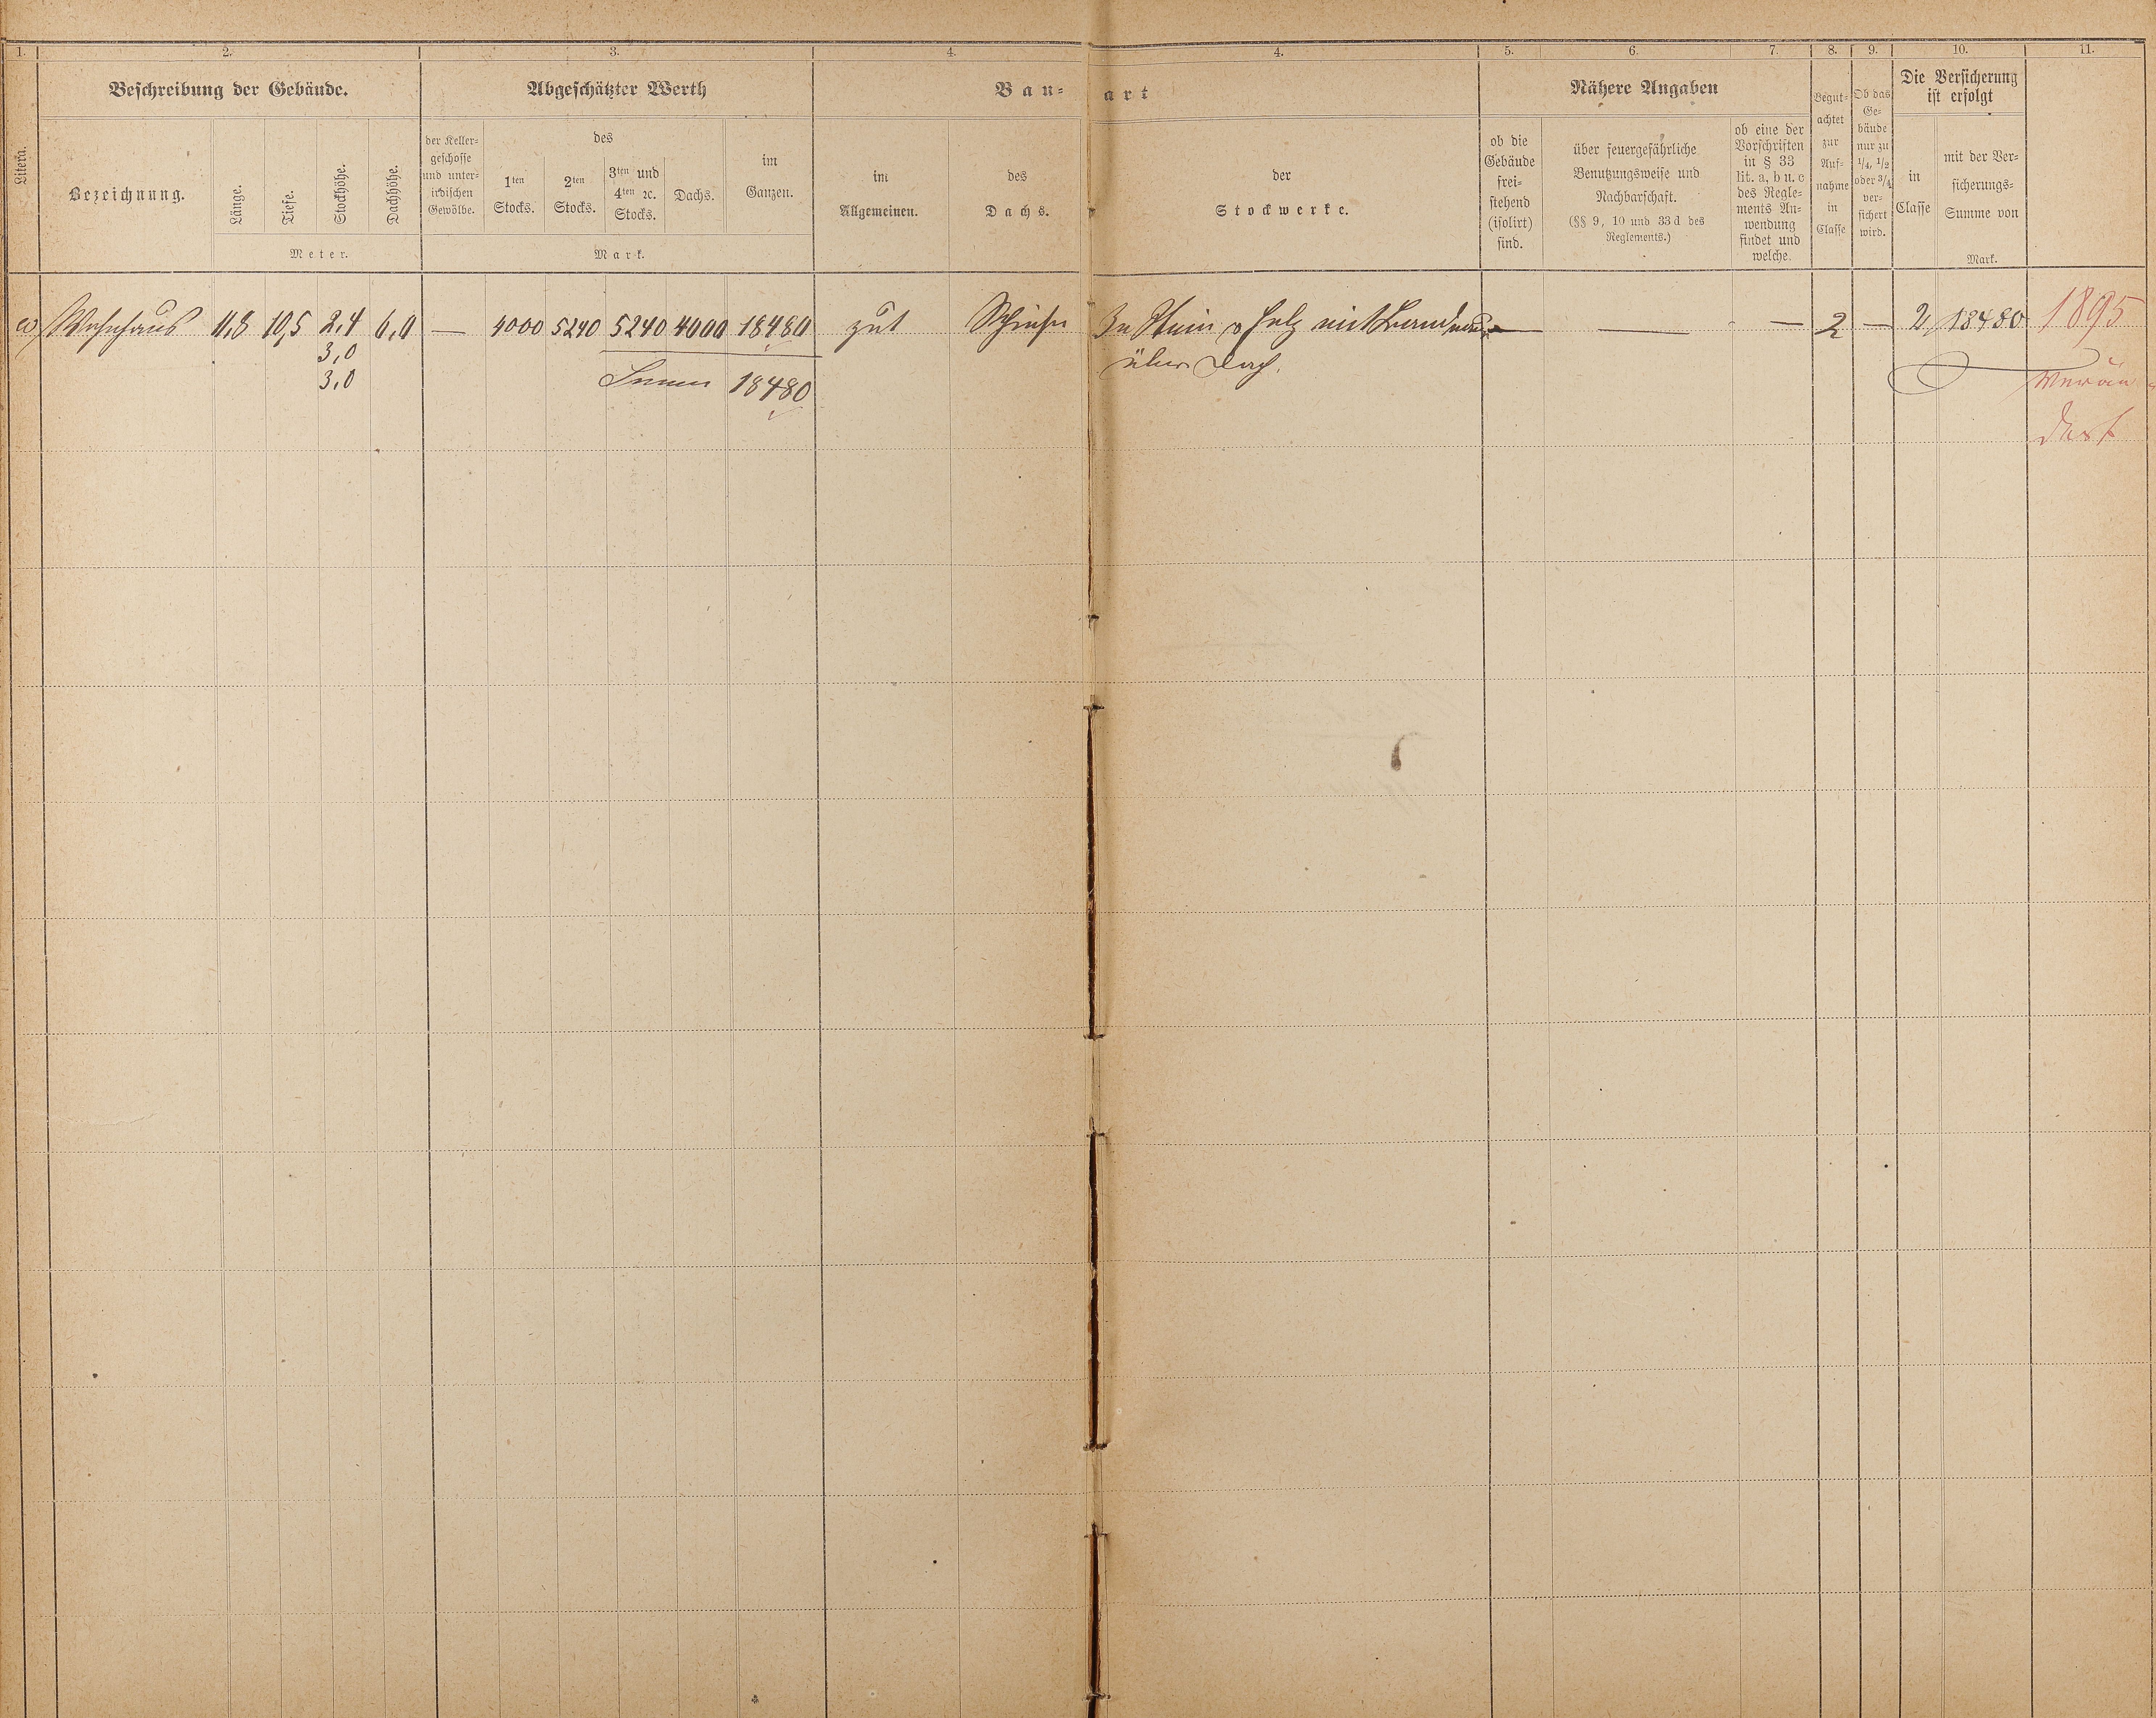 1. 2. 3. 4. 4. 5. 6. 7. 8. 9. 10. 11.
Beschreibung der Gebäude. Abgeschätzter Werth Bau- art Nähere Angaben
Die Versicherung
ist erfolgt
Litera.
Bezeichnung.
Länge.
Tiefe.
Stockhöhe.
Dachhöhe.
Meter.
der Keller-
geschosse
und unter-
irdischen
Gewölbe.
des
1ten
Stocks.
2ten
Stocks.
3ten und
4ten ꝛc.
Stocks.
Dachs.
im
Ganzen.
Mark.
im
Allgemeinen.
des
Dachs.
der
Stockwerke.
ob die
Gebäude
frei-
stehend
(isolirt)
sind.
über feuergefährliche
Benutzungsweise und
Nachbarschaft.
(§§ 9, 10 und 33 d des
Reglements.)
ob eine der
Vorschriften
in § 33
lit. a, b u. c
des Regle-
ments An-
wendung
findet und
welche.
Begut-
achtet
zur
Auf-
nahme
in
Classe
Ob das
Ge-
bäude
nur zu
1/4, 1/2
oder 3/4
ver-
sichert
wird.
in
Classe
mit der Ver-
sicherungs-
Summe von
Mark.
a) Wohnhaus 11,8 10,5 2,4 6,0 — 4000 5240 5240 4000 18480 gut Schiefer In Stein & Holz mit Brandmauer — — — 2 — 2 18480 1895
3,0
über Dach.
3,0
Summe 18480
Verän-
dert